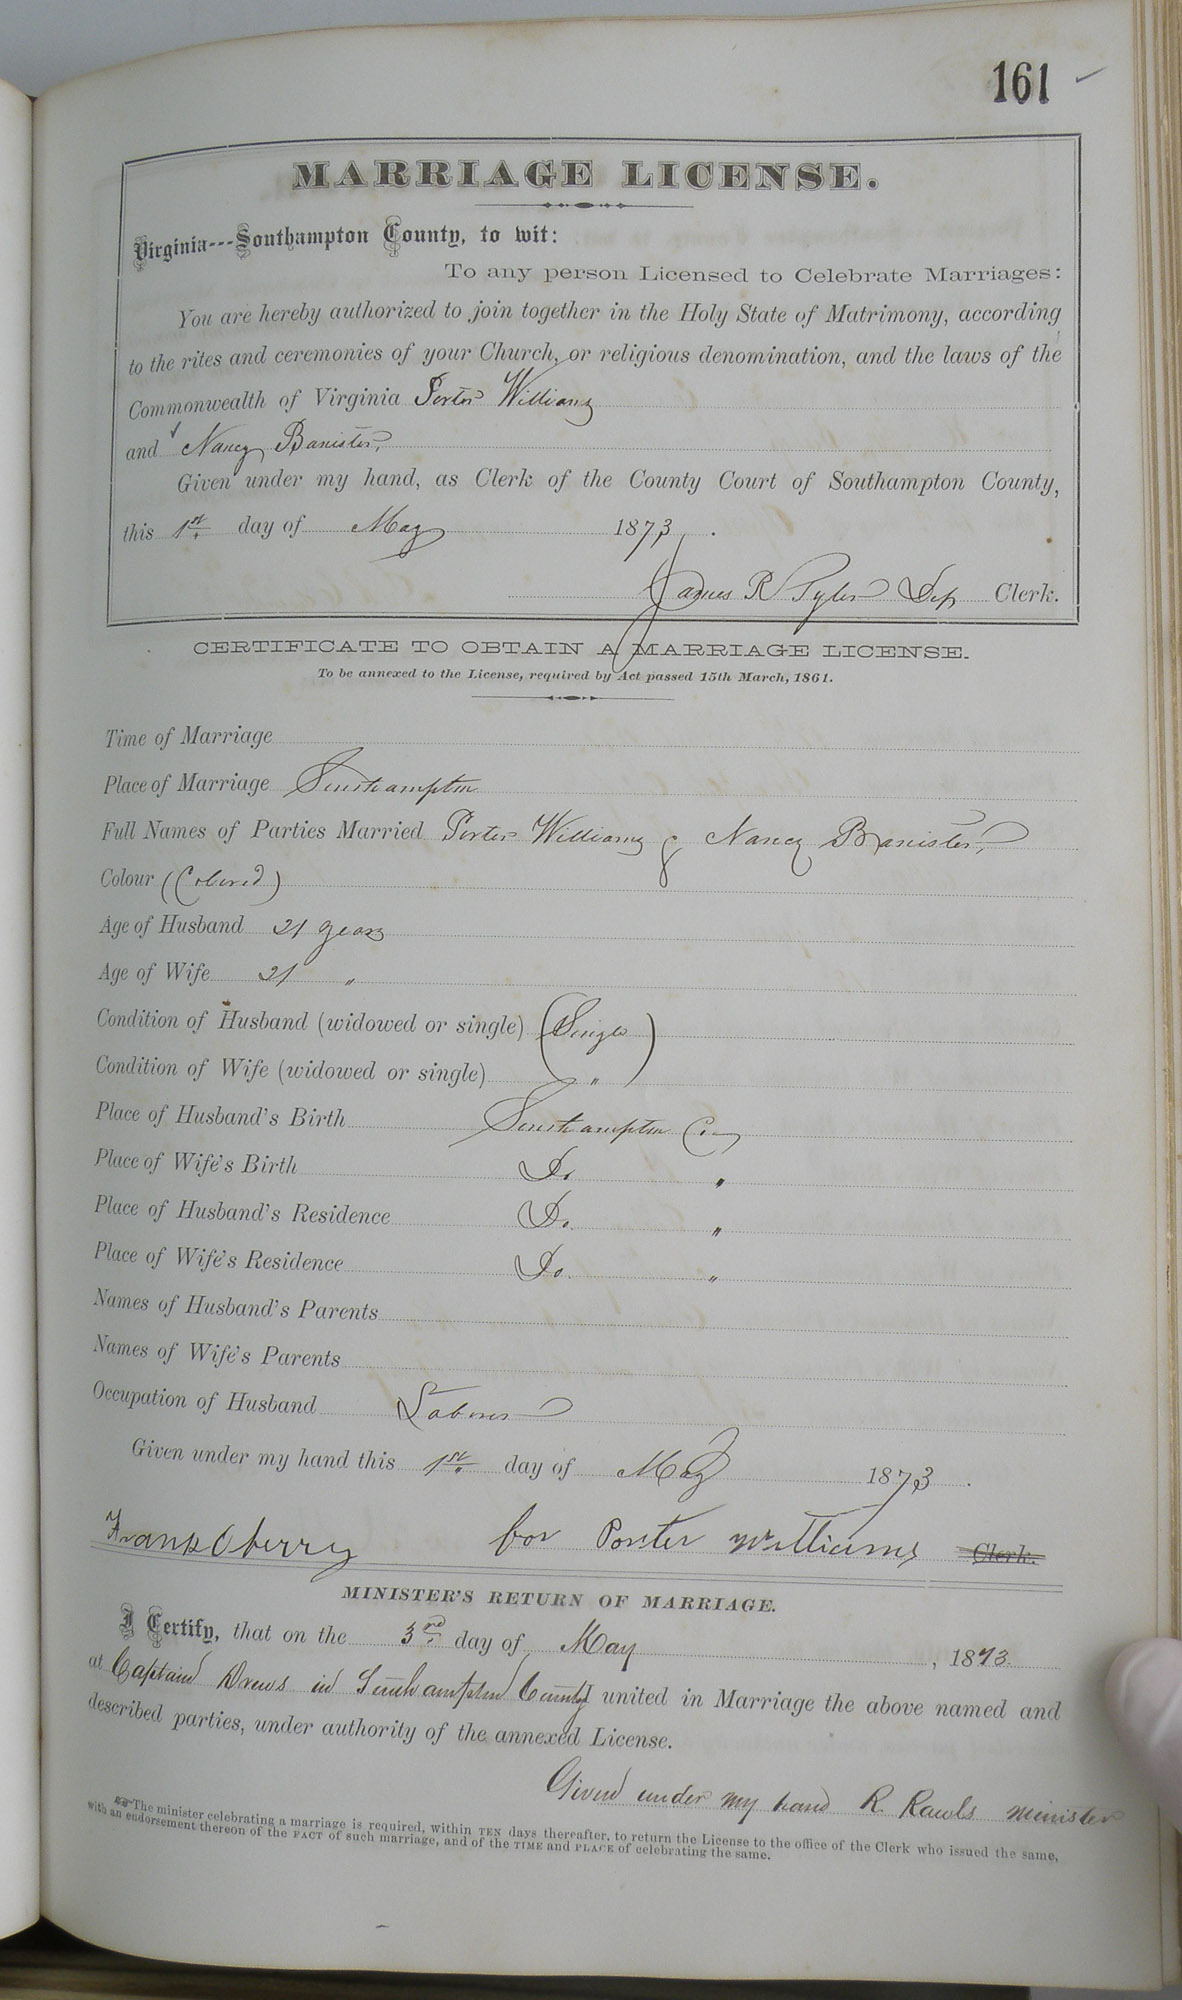 161
MARRIAGE LICENSE.
Virginia---Southampton County, to wit:
To any person Licensed to Celebrate Marriages:
You are hereby authorized to join together in the Holy State of Matrimony, according
to the rites and ceremonies of your Church, or religious denomination, and the laws of the
Commonwealth of Virginia Porter Williams
and Nancy Banister,
Given under my hand, as Clerk of the County Court of Southampton County,
this 1st day of May 1873.
James R Tyler Dep Clerk.
CERTIFICATE TO OBTAIN A MARRIAGE LICENSE.
To be annexed to the License, required by Act passed 15th March, 1861.
Time of Marriage
Place of Marriage Southampton
Full Names of Parties Married Porter Williams & Nancy Banister,
Colour (Colored)
Age of Husband 21 years
Age of Wife 21 "
Condition of Husband (widowed or single) (Single)
Condition of Wife (widowed or single) "
Place of Husband's Birth Southampton Co
Place of Wife's Birth Do. "
Place of Husband's Residence Do. "
Place of Wife's Residence Do. "
Names of Husband's Parents
Names of Wife's Parents
Occupation of Husband Laborer
Given under my hand this 1st day of May 1873.
Frank Oberry for Porter Williams Clerk.
MINISTER'S RETURN OF MARRIAGE.
I Certify, that on the 3rd day of May, 1873.
at Captain Drews in Southampton County I united in Marriage the above named and
described parties, under authority of the annexed License.
Given under my hand R. Rawls minister
The minister celebrating a marriage is required, within TEN days thereafter, to return the License to the office of the Clerk who issued the same,
with an endorsement thereon of the FACT of such marriage, and of the TIME and PLACE of celebrating the same.